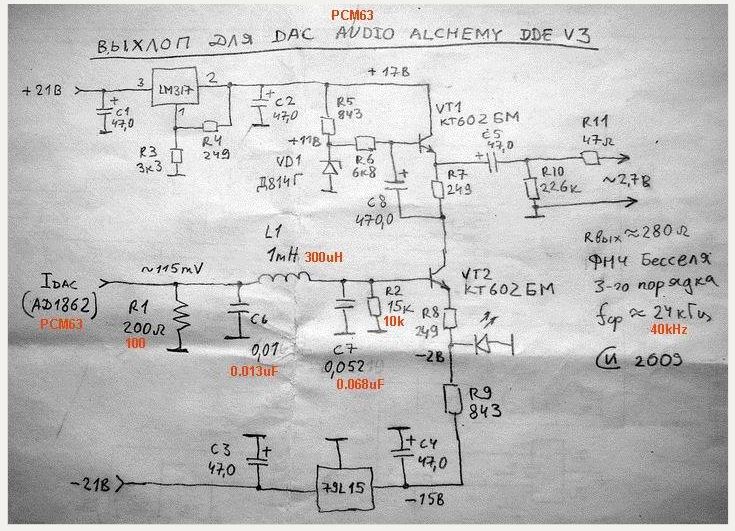 PCM63
ВЫХЛОП ДЛЯ DAC AUDIO ALCHEMY DDE V3
+21В
3
LM317
2
1
+17В
+
C1
47,0
R3
3к3
R4
249
+
C2
47,0
R5
843
+11В
VD1
Д814Г
R6
6к8
+
C8
470,0
VT1
КТ602БМ
R7
249
+
C5
47,0
R10
226к
R11
47Ω
~2,7В
Rвых≈280Ω
ФНЧ Бесселя
3-го порядка
fср ≈ 24кГц
40kHz
2009
IDAC
(AD1862)
PCM63
~115mV
R1
200Ω
100
L1
1mH
300uH
C6
0,01
0.013uF
C7
0,052
0.068uF
R2
15к
10k
VT2
КТ602БМ
R8
249
-2В
R9
843
C3
47,0
+
79L15
C4
47,0
+
-15В
-21В